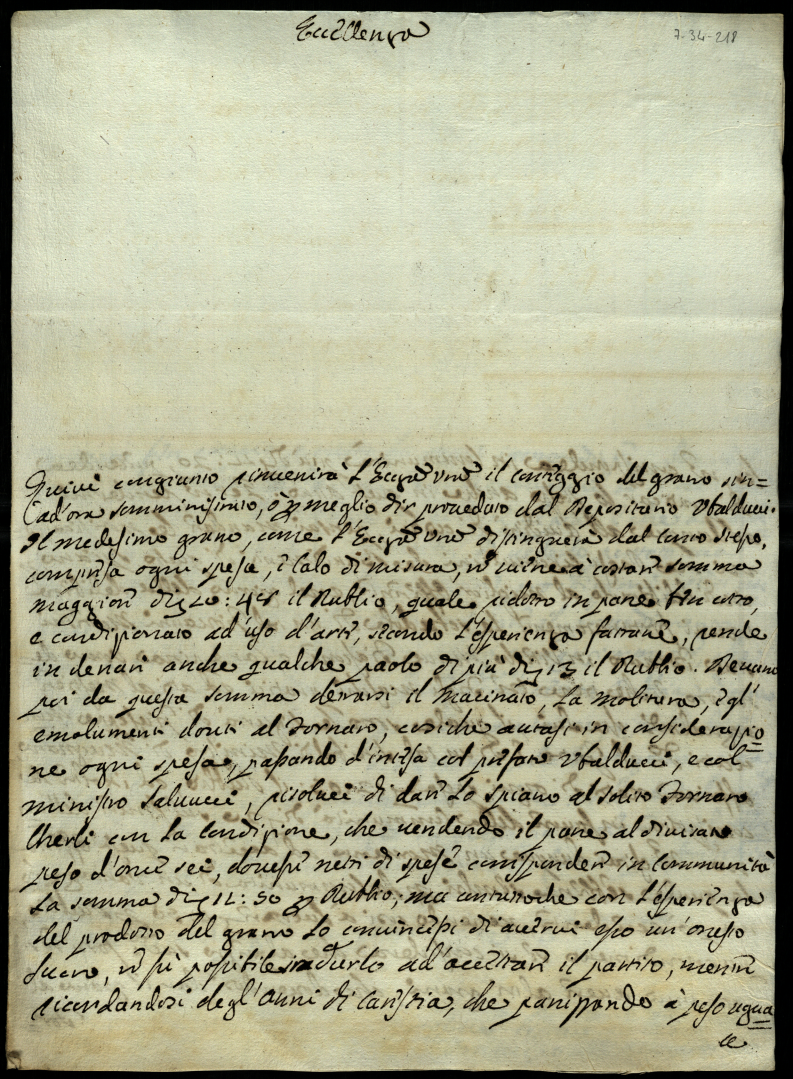 Eccellenza
7-34-218
Quivi congiunto rinvenirà l'Eccza Vra il conteggio del grano sin=
ad'ora somministrato, ò meglio dir proveduto dal Depositario Ubalducci.
Il medesimo grano, come l'Eccza Vra distinguerà dal conto stesso,
compresa ogni spesa, è calo di misura, viene à costare somma
maggiore di 20:45 il Rubbio, quale ridotto in pane ben cotto,
e condizionato ad'uso d'arte, secondo l'esperienza fattane, rende
in denari anche qualche paolo di più di 13 il Rubbio. Devano
poi da questa somma detrarsi il Macinato, la Molitura, e gl'
emolumenti douti al Fornaro, cosiche autasi in considerazio=
ne ogni spesa, passando d'intesa col prefato Ubalducci, e col
ministro Salvucci, risoluei di dare lo spiano al solito Fornaro
Cherli con la condizione, che vendendo il pane al divisato
peso d'oncie sei, dovesse netti di spese corrisponder in Communità
la somma di 12:50 Rubbio; ma contuttoche con l'esperienza
del prodotto del grano lo convincessi di avervi esso un'onesto
lucro, fù possibile indurlo ad'accettare il partito, mentre
ricordandosi degl'anni di carestia, che panizzando à peso ugua=
le